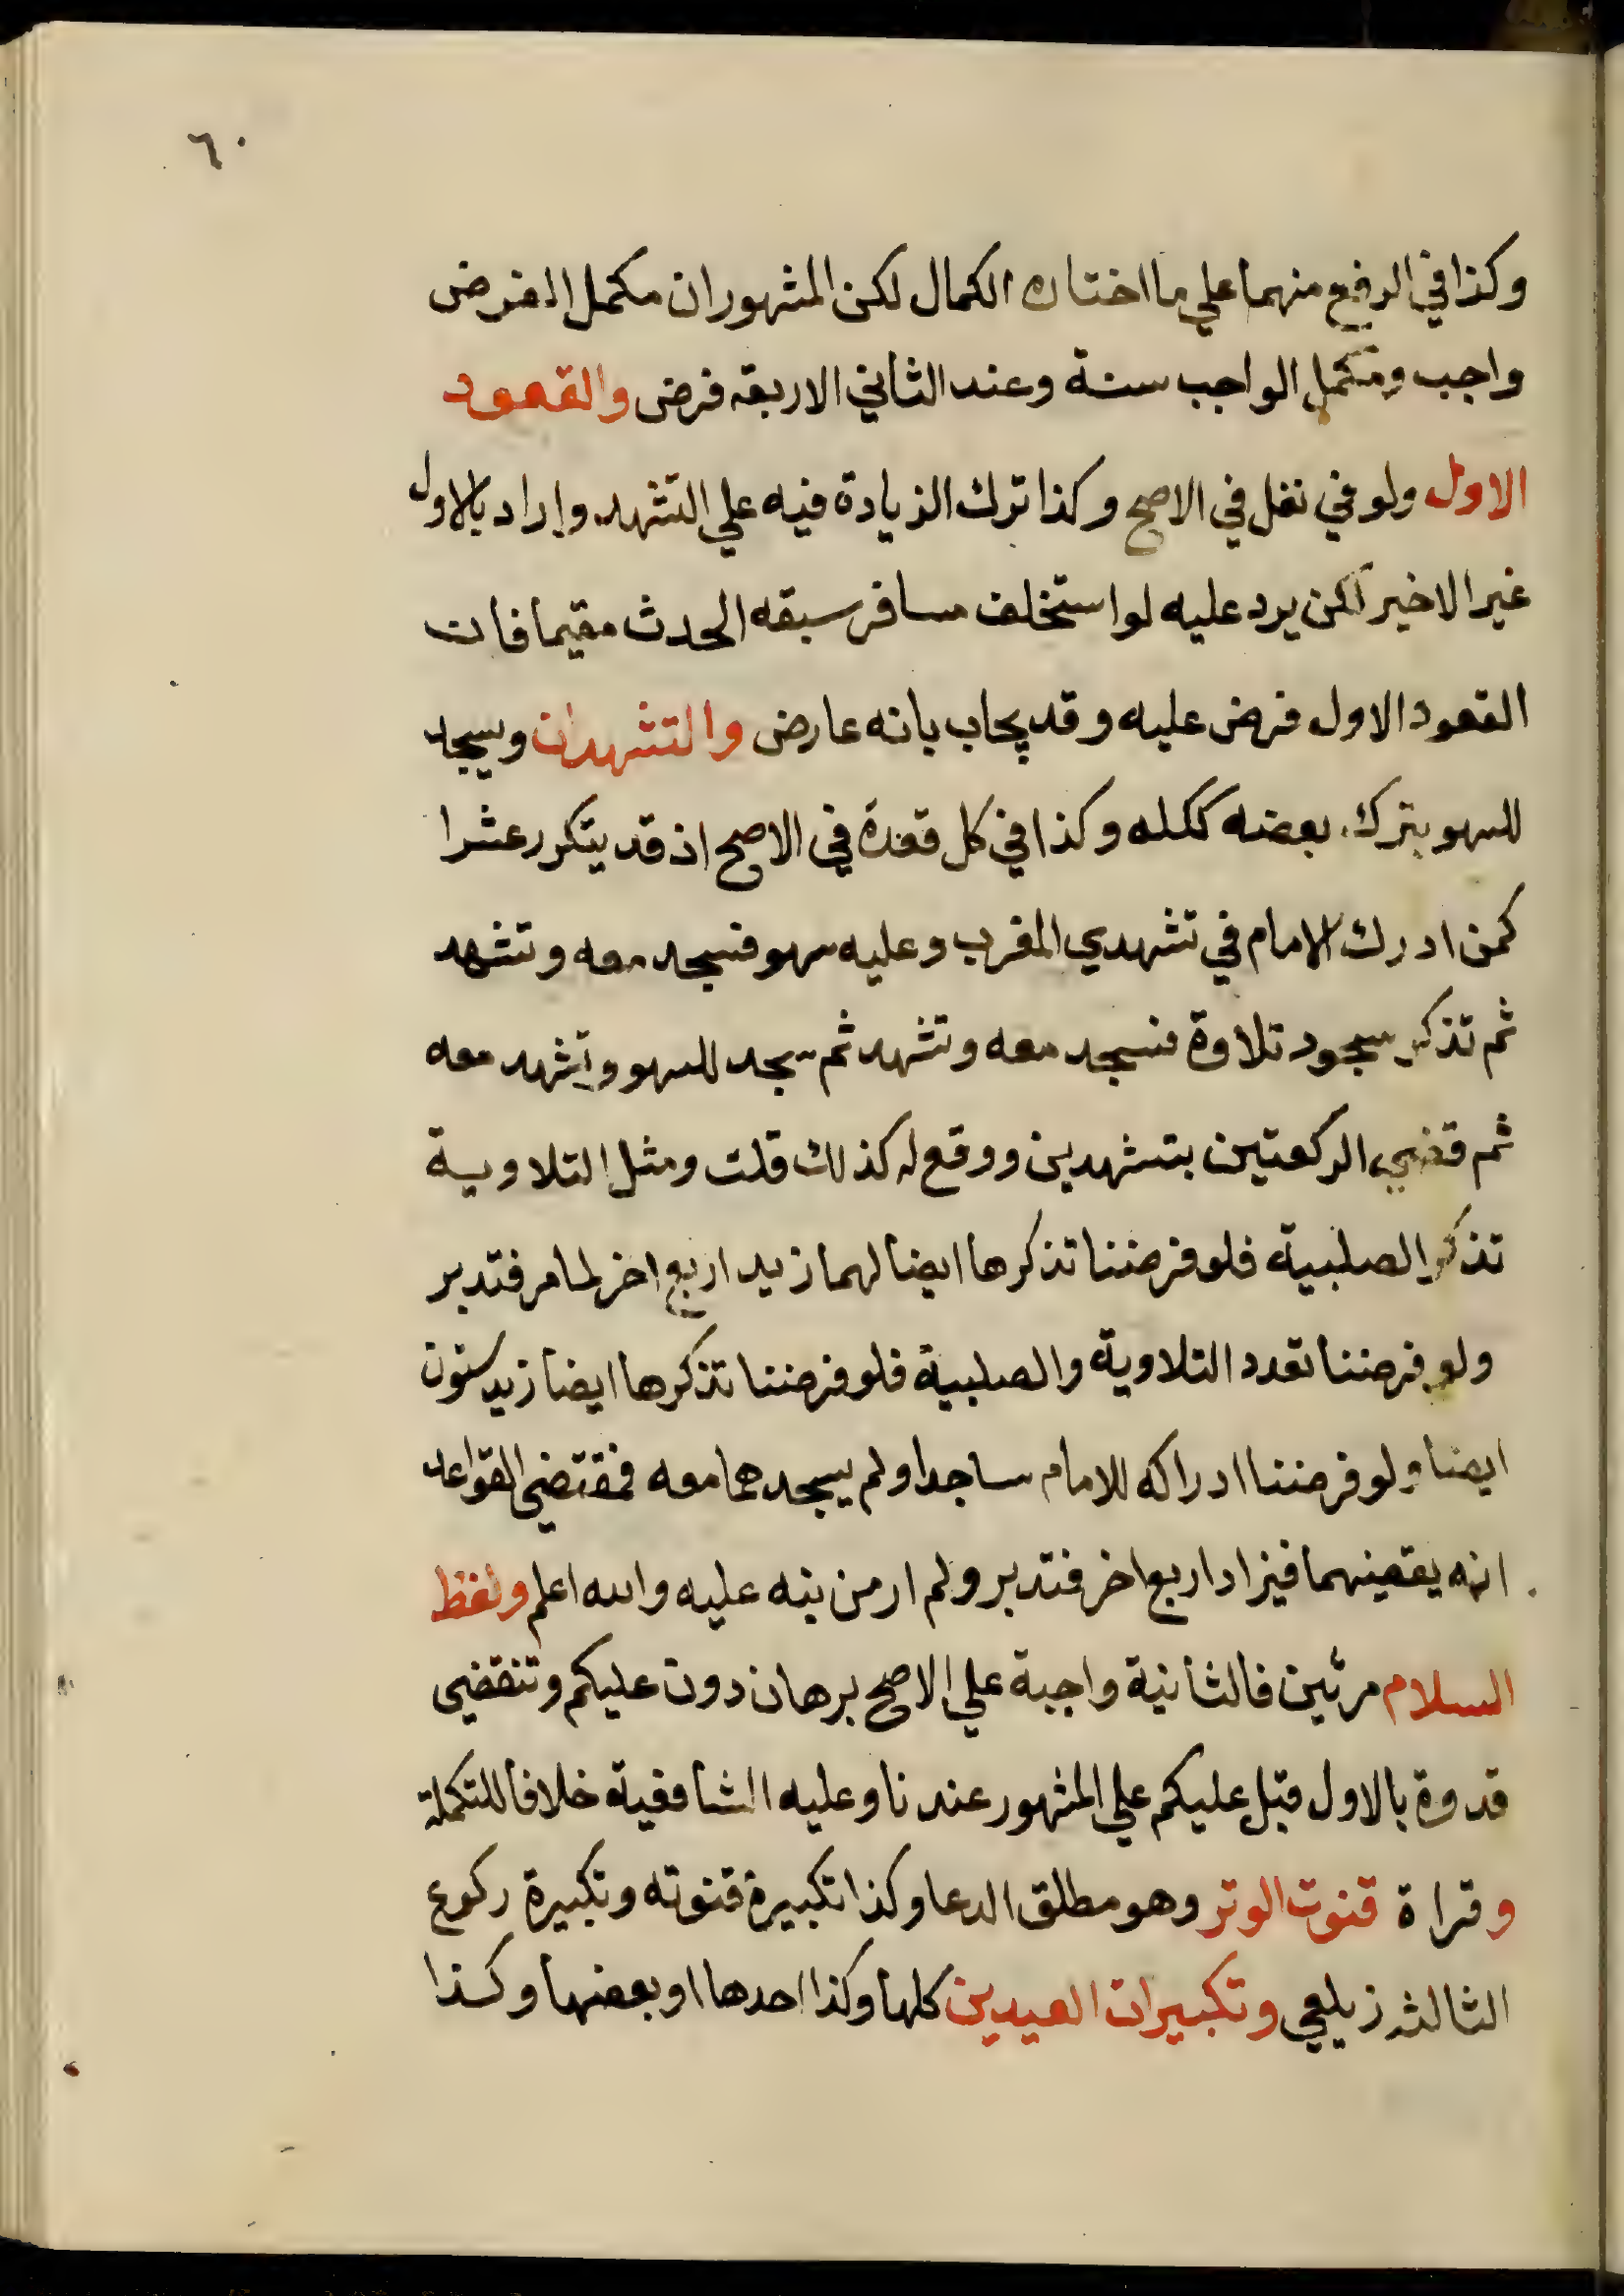 ٦٠
وكذا في الرفع منهما علي ما اختاره الكمال لكن المشهور ان مكمل الفرض
واجب ومكمل الواجب سنة وعند الثاني الاربعة فرض والقعود
الاول ولو في نفل في الاصح وكذا ترك الزيادة فيه علي التشهد واراد بالاول
غير الاخير لكن يرد عليه لو استخلف مسافر سبقه الحدث مقيما فان
القعود الاول فرض عليه وقد يجاب بانه عارض والتشهدان ويسجد
للسهو بترك بعضه ككله وكذا في كل قعدة في الاصح اذ قد يتكرر عشرا
كمن ادرك الامام في تشهدي المغرب وعليه سهو فسجد معه وتشهد
ثم تذكر سجود تلاوة فسجد معه وتشهد ثم سجد للسهو وتشهد معه
ثم قضي الركعتين بتشهدين ووقع له كذلك قلت ومثل التلاوية
تذكر الصلبية فلو فرضنا تذكرها ايضا لهما زيد اربع اخر لما مر فتدبر
ولو فرضنا تعدد التلاوية والصلبية فلو فرضنا تذكرها ايضا زيد ستون
ايضا ولو فرضنا ادراكه للامام ساجدا ولم يسجدهما معه فمقتضي القواعد
انه يقضيهما فيزاد اربع اخر فتدبر ولم ار من نبه عليه والله اعلم ولفظ
السلام مرتين فالثانية واجبة علي الاصح برهان دون عليكم وتنقضي
قدوة بالاول قبل عليكم علي المشهور عندنا وعليه الشافعية خلافا للتكملة
وقراة قنوت الوتر وهو مطلق الدعا وكذا تكبيرة قنوته وتكبيرة ركوع
الثالثة زيلعي وتكبيرات العيدين كلها وكذا احدها او بعضها وكذا